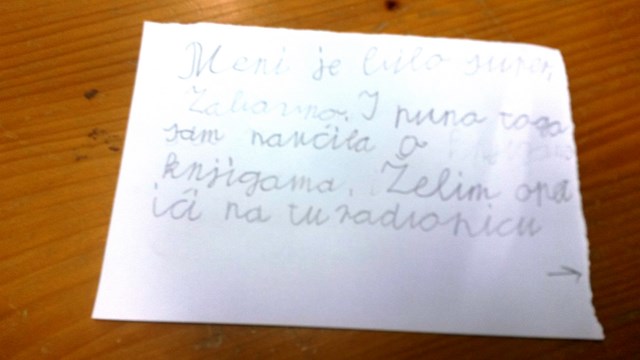 Meni je bilo super,
Zabavno. I puna toga
sam naučila o
knjigama. Želim opa
ići na tu radionicu
→